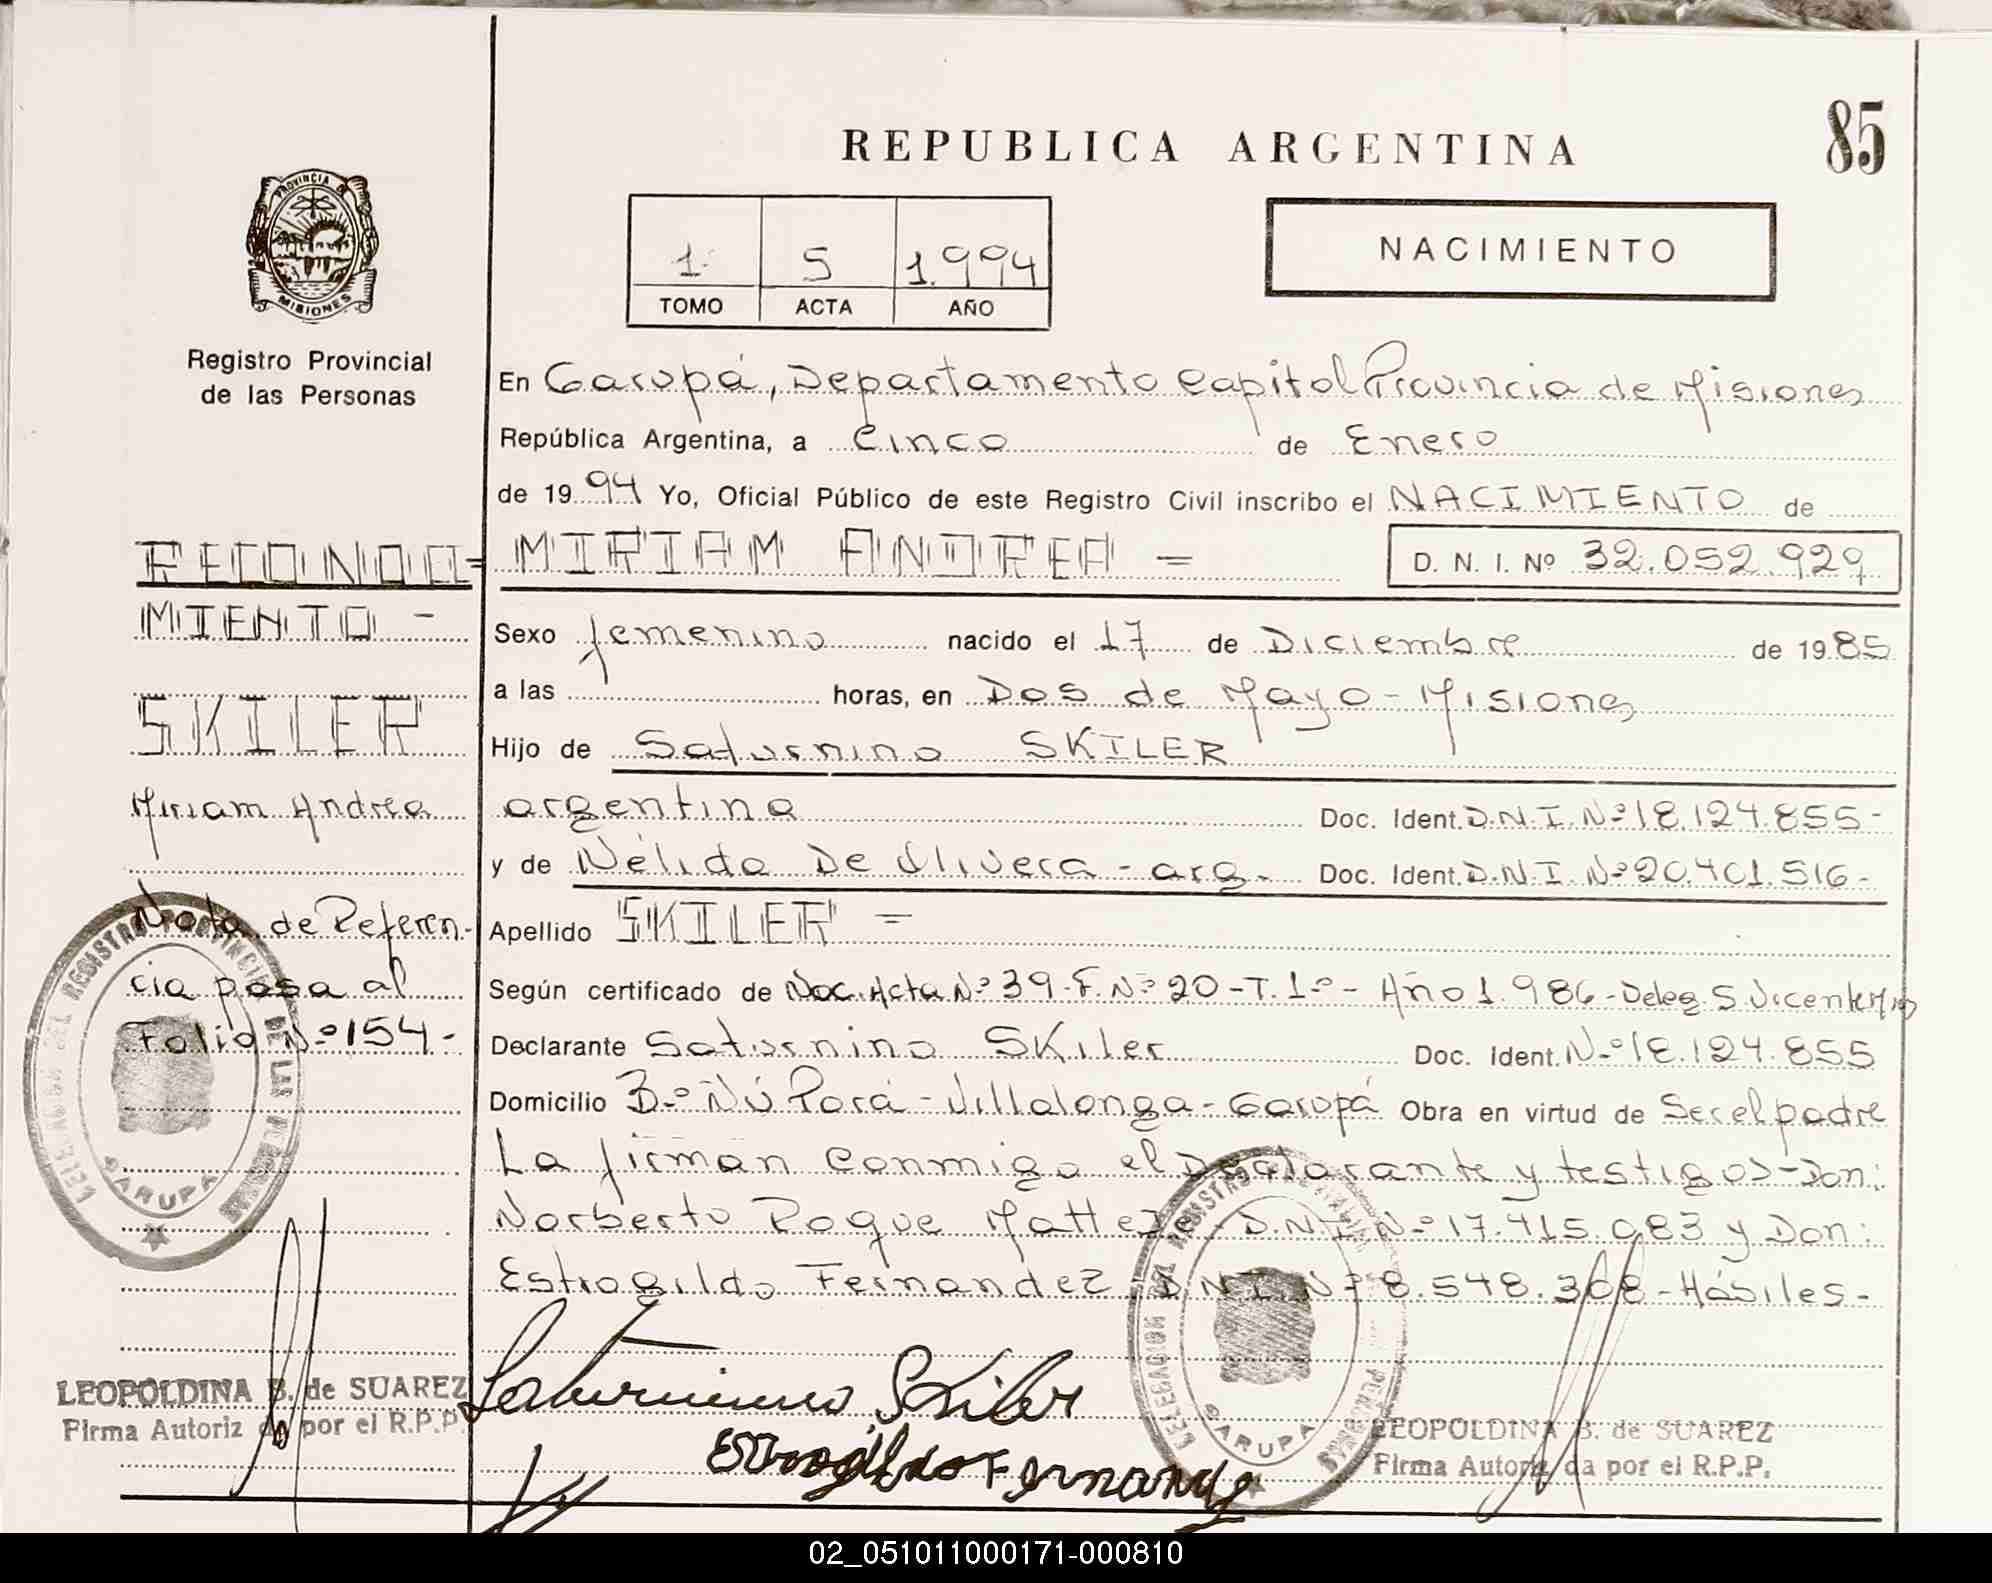 85
REPUBLICA ARGENTINA
PROVINCIA DE
MISIONES
Registro Provincial
de las Personas
1 5 1.994
TOMO ACTA AÑO
NACIMIENTO
En Garupá, Departamento Capital Provincia de Misiones
República Argentina, a Cinco de Enero
de 1994 Yo, Oficial Público de este Registro Civil inscribo el NACIMIENTO de
MIRIAM ANDREA =
D. N. I. Nº 32.052.929
Sexo femenino nacido el 17 de Diciembre de 1985
a las horas, en Dos de Mayo - Misiones
Hijo de Saturnino SKILER
argentina Doc. Ident. D.N.I. Nº 18.124.855-
y de Nélida De Olivera - arg. Doc. Ident. D.N.I. Nº 20.401.516-
Apellido SKILER =
Según certificado de Nac. Acta Nº 39-F. Nº 20-T. 1º - Año 1.986 - Deleg. S. Vicente
Declarante Saturnino Skiler Doc. Ident. Nº 18.124.855
Domicilio Bº Ñú Porá - Villalonga - Garupá Obra en virtud de Ser el padre
La firman conmigo el Declarante y testigos - Don:
Norberto Roque D.N.I. Nº 17.415.083 y Don:
Estrogildo Fernandez D.N.I. Nº 8.548.308 - Hábiles -
Saturnino Skiler
Estrogildo Fernandez
RECONOCI=
MIENTO -
SKILER
Miriam Andrea
Nota de Referen-
cia pasa al
Folio Nº 154-
DELEGACION DEL REGISTRO PROVINCIAL DE LAS PERSONAS
GARUPA
LEOPOLDINA B. de SUAREZ
Firma Autoriz da por el R.P.P.
DELEGACION DEL REGISTRO PROVINCIAL DE LAS PERSONAS
GARUPA
LEOPOLDINA B. de SUAREZ
Firma Autoriz da por el R.P.P.
02_051011000171-000810